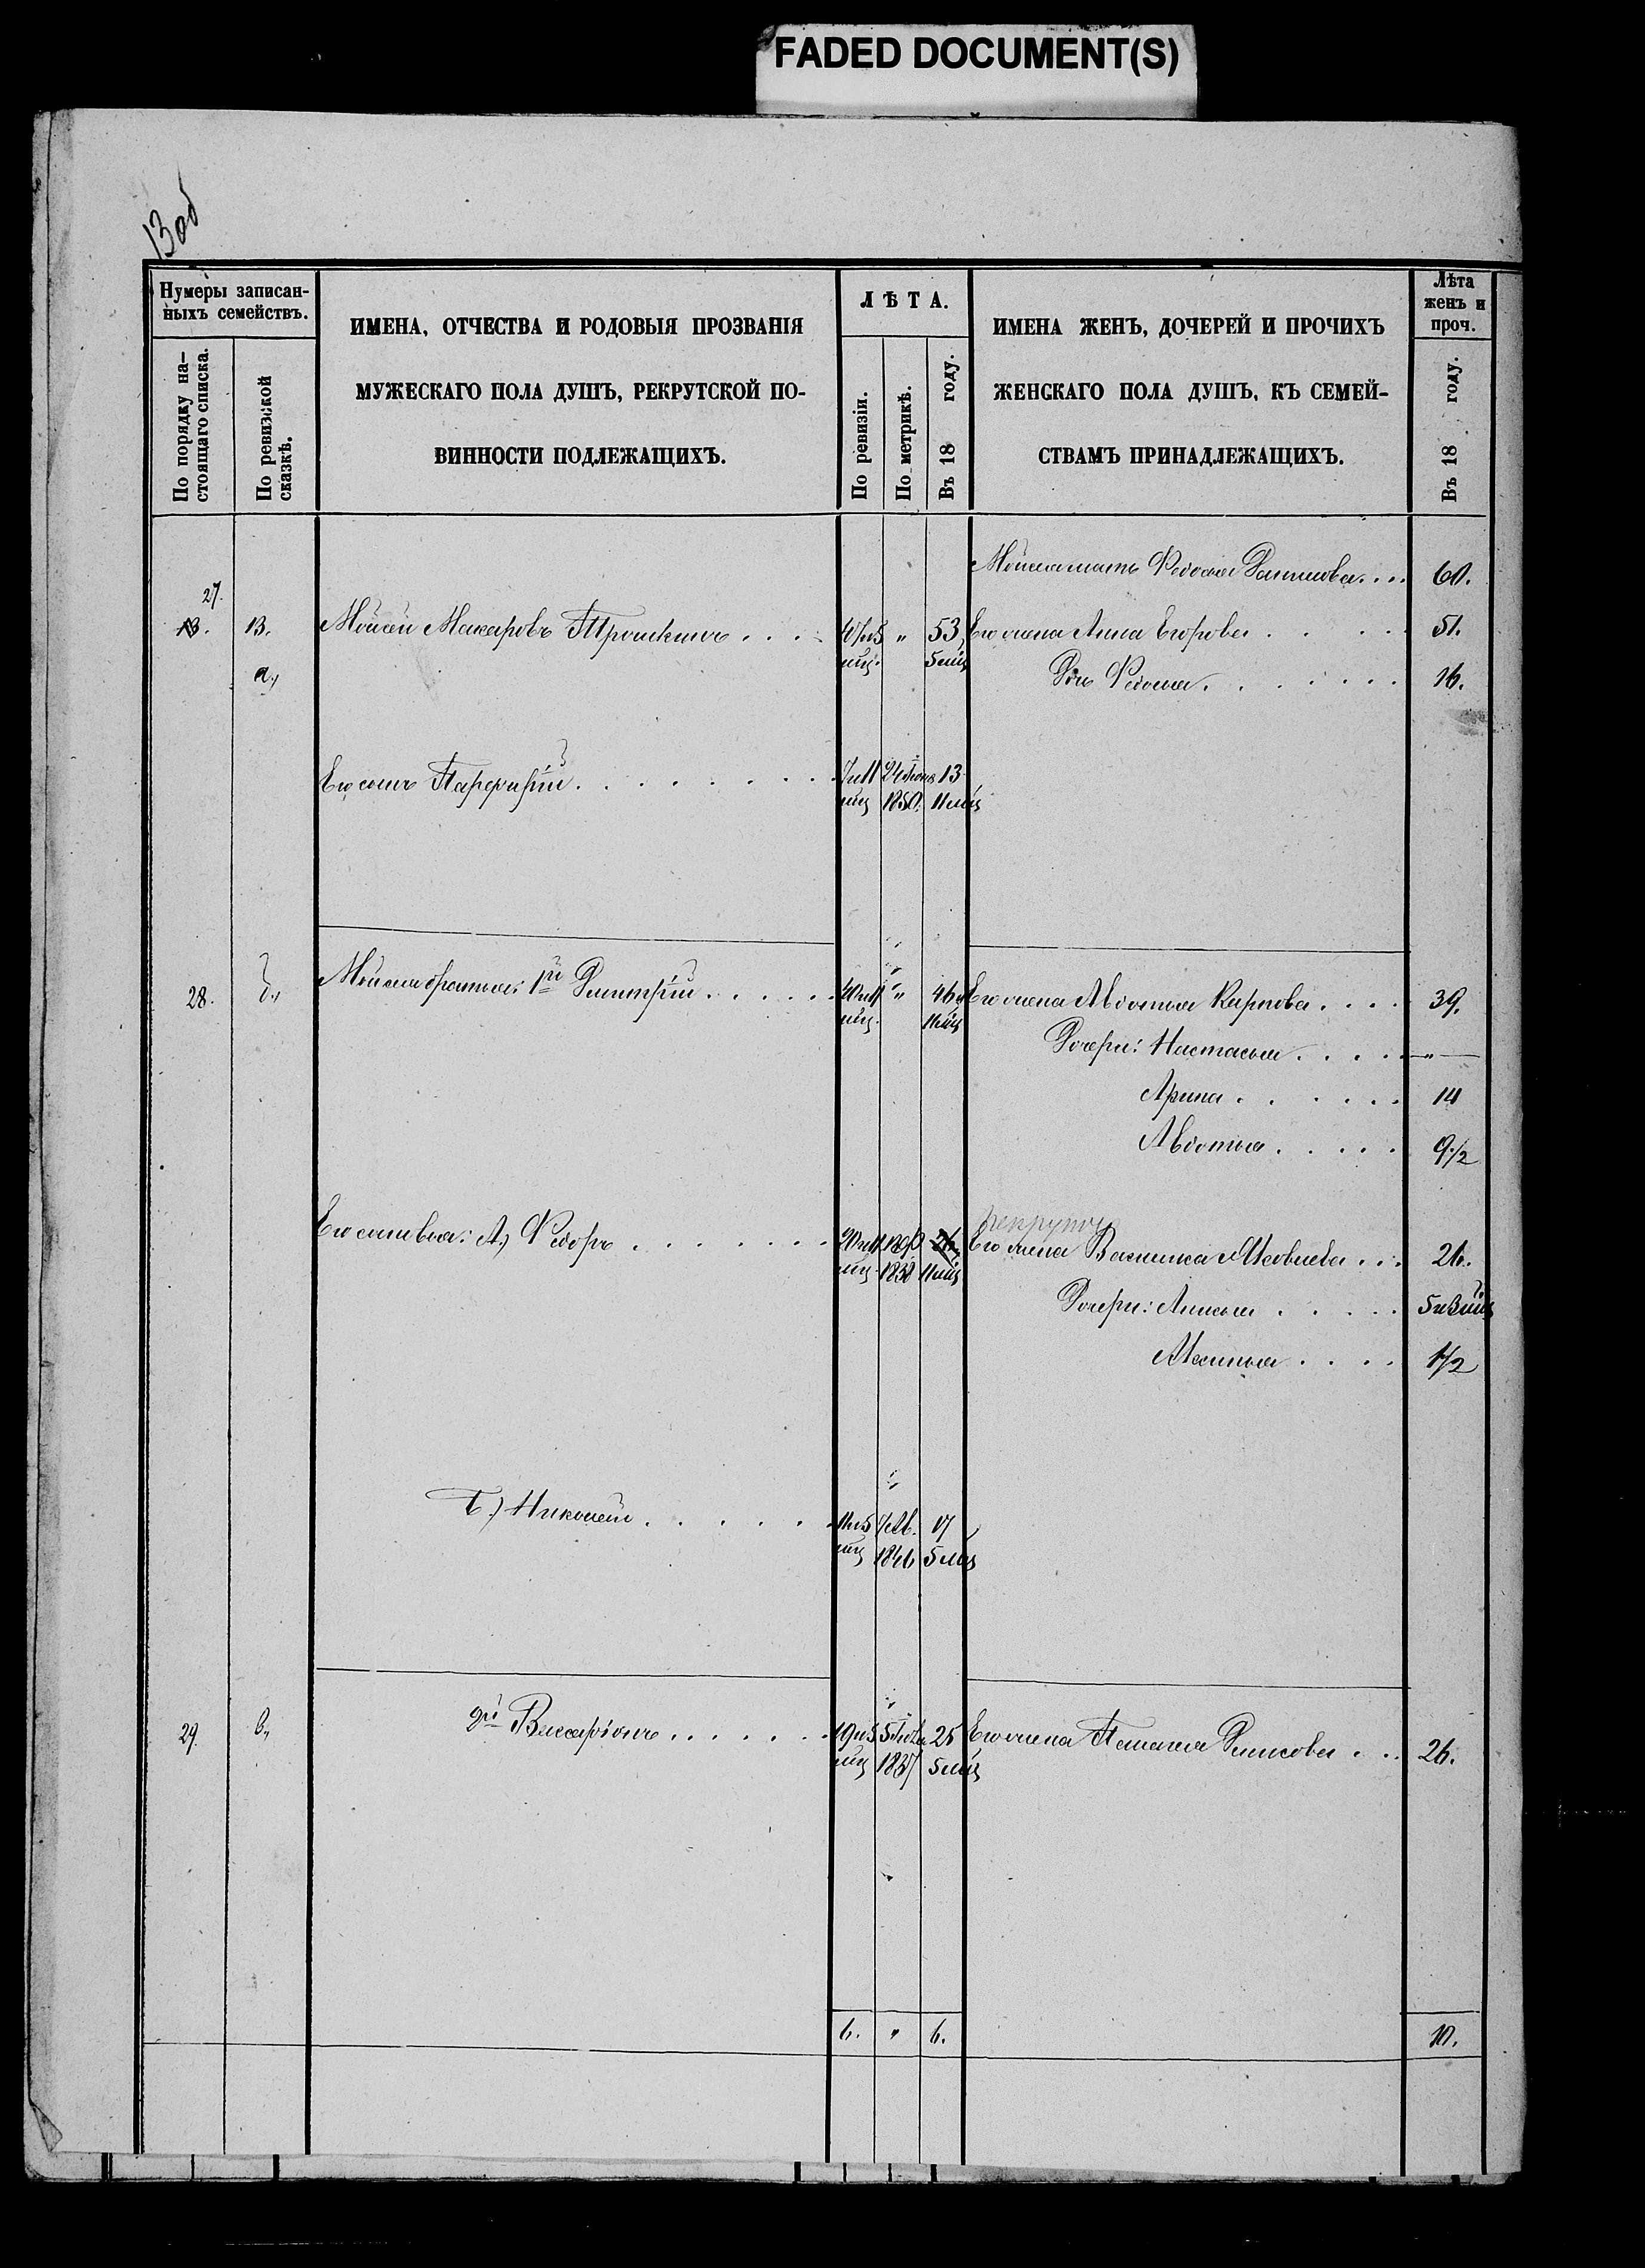 FADED DOCUMENT(S)
13об
Нумеры записан-
ныхъ семействъ.
По порядку на-
стоящаго списка.
По ревизской
сказкѣ.
ИМЕНА, ОТЧЕСТВА И РОДОВЫЯ ПРОЗВАНІЯ
МУЖЕСКАГО ПОЛА ДУШЪ, РЕКРУТСКОЙ ПО-
ВИННОСТИ ПОДЛЕЖАЩИХЪ.
ЛѢТА.
По ревизіи.
По метрикѣ.
Въ 18 году.
ИМЕНА ЖЕНЪ, ДОЧЕРЕЙ И ПРОЧИХЪ
ЖЕНСКАГО ПОЛА ДУШЪ, КЪ СЕМЕЙ-
СТВАМЪ ПРИНАДЛЕЖАЩИХЪ.
Лѣта
женъ и
проч.
Въ 18 году.
Моисея мать Федосья .... 60.
27.
13. 13. Моисей Макаровъ Трошкинъ .... " 53 Его жена Анна Егорова .... 51.
мц. 5 мц
а., Дочь Федосья .... 16.
Его сынъ Парфирій .... 7 и 11 24 Іюня 13
мц 1850. 11 мц
28. б., Моисея братья: 1й Дмитрій .... 40 и 11 " 46 Его жена Авдотья Карпова .... 39.
мц. 11 мц
Дочери: Настасья .... "
Арина .... 14
Авдотья .... 9 1/2
рекрутъ
Его сыновья: А) Федоръ .... 20 и 11 26 Его жена Василиса Яковлева ... 26.
мц. 1838 11 мц
Дочери: Анисья .... 5 и 3 мц
Аксинья .... 1/2
Б.) Николай .... 11 и 5 17
мц 1846 5 мц
29. в., 2й Виссаріонъ .... 19 и 5 25 Его жена Пелагея Денисова ... 26.
мц 1837 5 мц
6. " 6. 10.